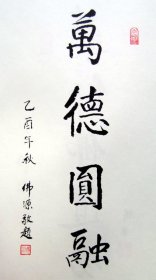 萬德圓融
乙酉年秋 佛源敬題